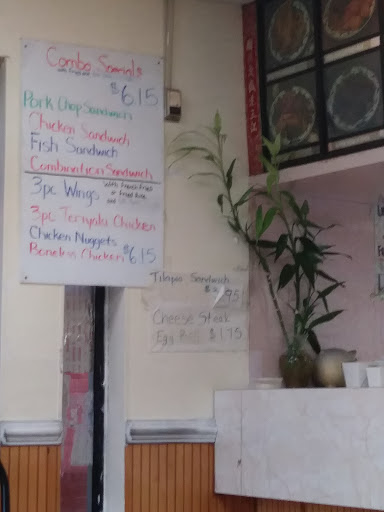 Combo Specials
$6.15
Pork Chop Sandwich
Chicken Sandwich
Fish Sandwich
Combination Sandwich
3pc Wings with French Fries
or Fried Rice
3pc Teriyaki Chicken
Chicken Nuggets
Boneless Chicken $6.15
Tilapia Sandwich
Cheese Steak
Egg Roll $1.75